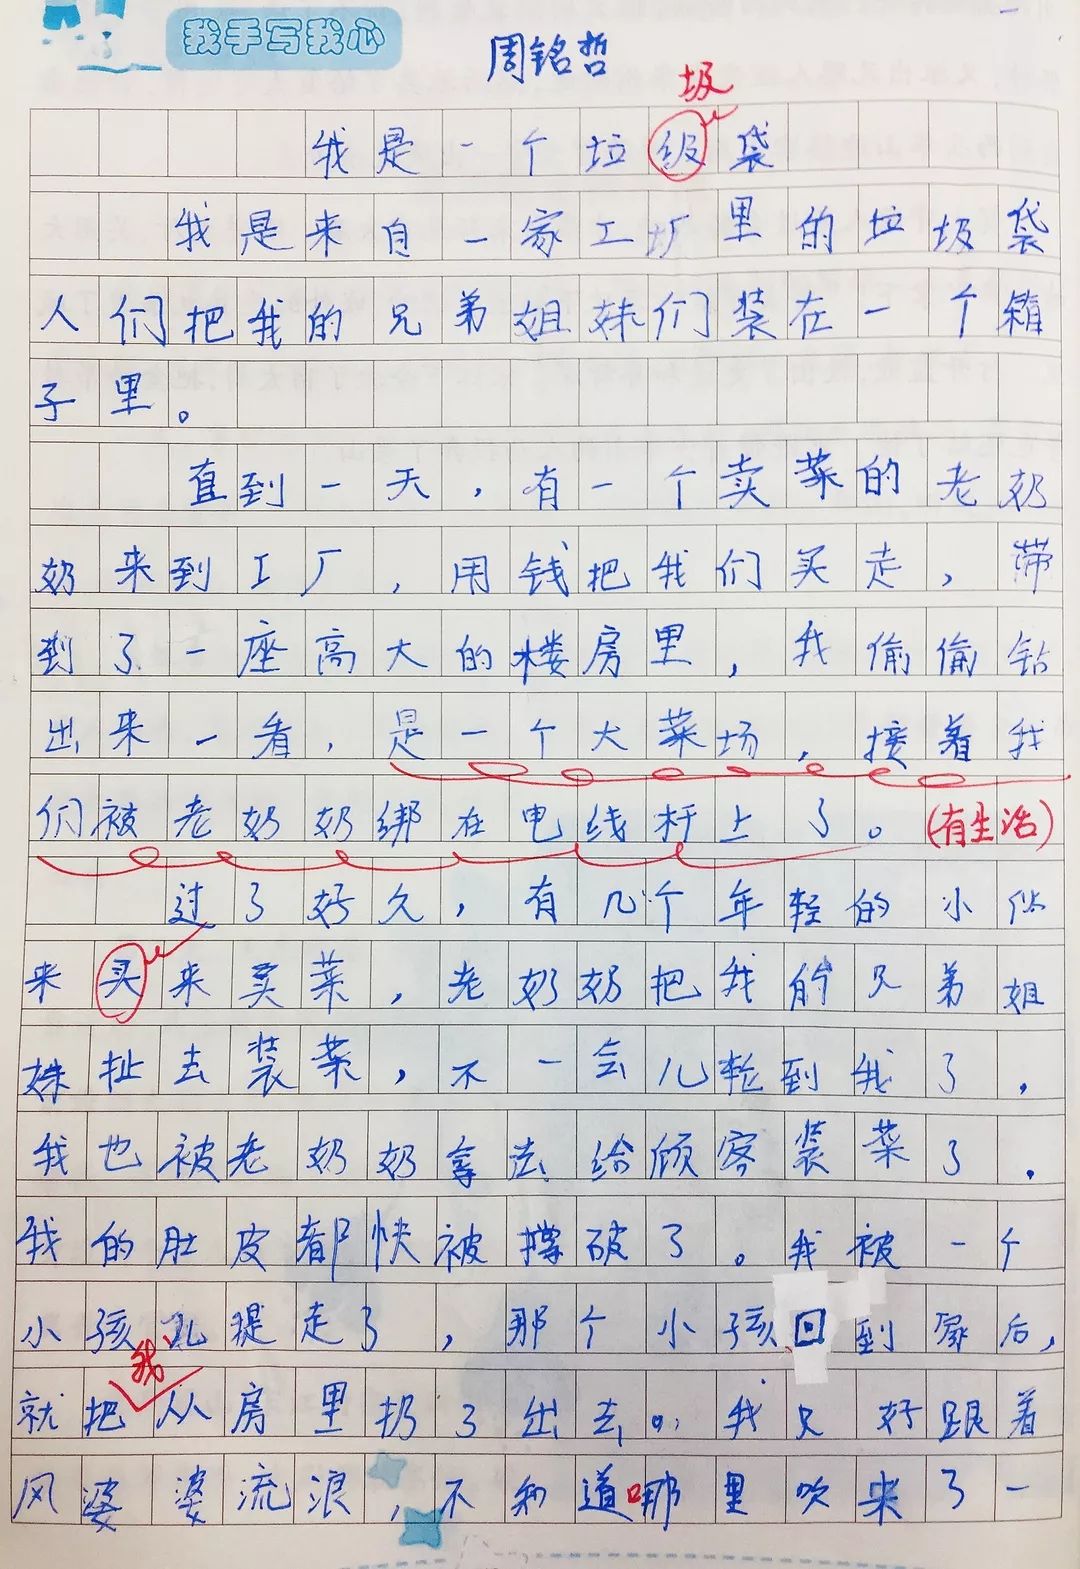 我手写我心
周铭哲
圾
我是一个垃级袋
我是来自一家工厂里的垃圾袋
人们把我的兄弟姐妹们装在一个箱
子里。
直到一天,有一个卖菜的老奶
奶来到工厂,用钱把我们买走,带
到了一座高大的楼房里,我偷偷钻
出来一看,是一个大菜场,接着我
们被老奶奶绑在电线杆上了。(有生活)
过了好久,有几个年轻的小伙
来买来买菜,老奶奶把我的兄弟姐
妹扯去装菜,不一会儿轮到我了,
我也被老奶奶拿去给顾客装菜了.
我的肚皮都快被撑破了。我被一个
小孩儿提走了,那个小孩回到家后,
我
就把从房里扔了出去。我只好跟着
风婆婆流浪,不知道哪里吹来了一